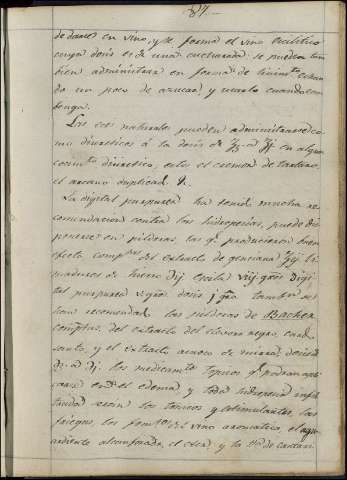 87.
de darse en vino, y se forma el vino scilitico
cuya dosis es de una cucharada: se pueden tam
bien administrar en forma de
do un poco de azucar y usarlo cuando con
benga.
Las sales naturales pueden administrarse co
mo diureticos á la dosis de en algun
cocimto diuretico, estos el cremor de tartaro,
el arcano duplicado &.
La digital purpurea ha tenido mucha re
comendacion contra las hidropesias, puede dis
ponerse en pildoras, las q. producieron buen
efecto comptas del extracto de genciana
maduras de hierro Escila viij gros digi
tal purpurea dosis j gno tambn se
han recomendado las pildoras de Bacher
comptas del extracto del eleboro negro, card
santo, y el extracto acuoso de mirra, dosis
los medicamtos topicos q. podran apli
carse en el edema y toda hidropesia infil
trada seran los tonicos y estimulantes, las
friegas, los fomtos del vino aromatico, el agua
ardiente alcanforada, el eter, y la tra de cantari